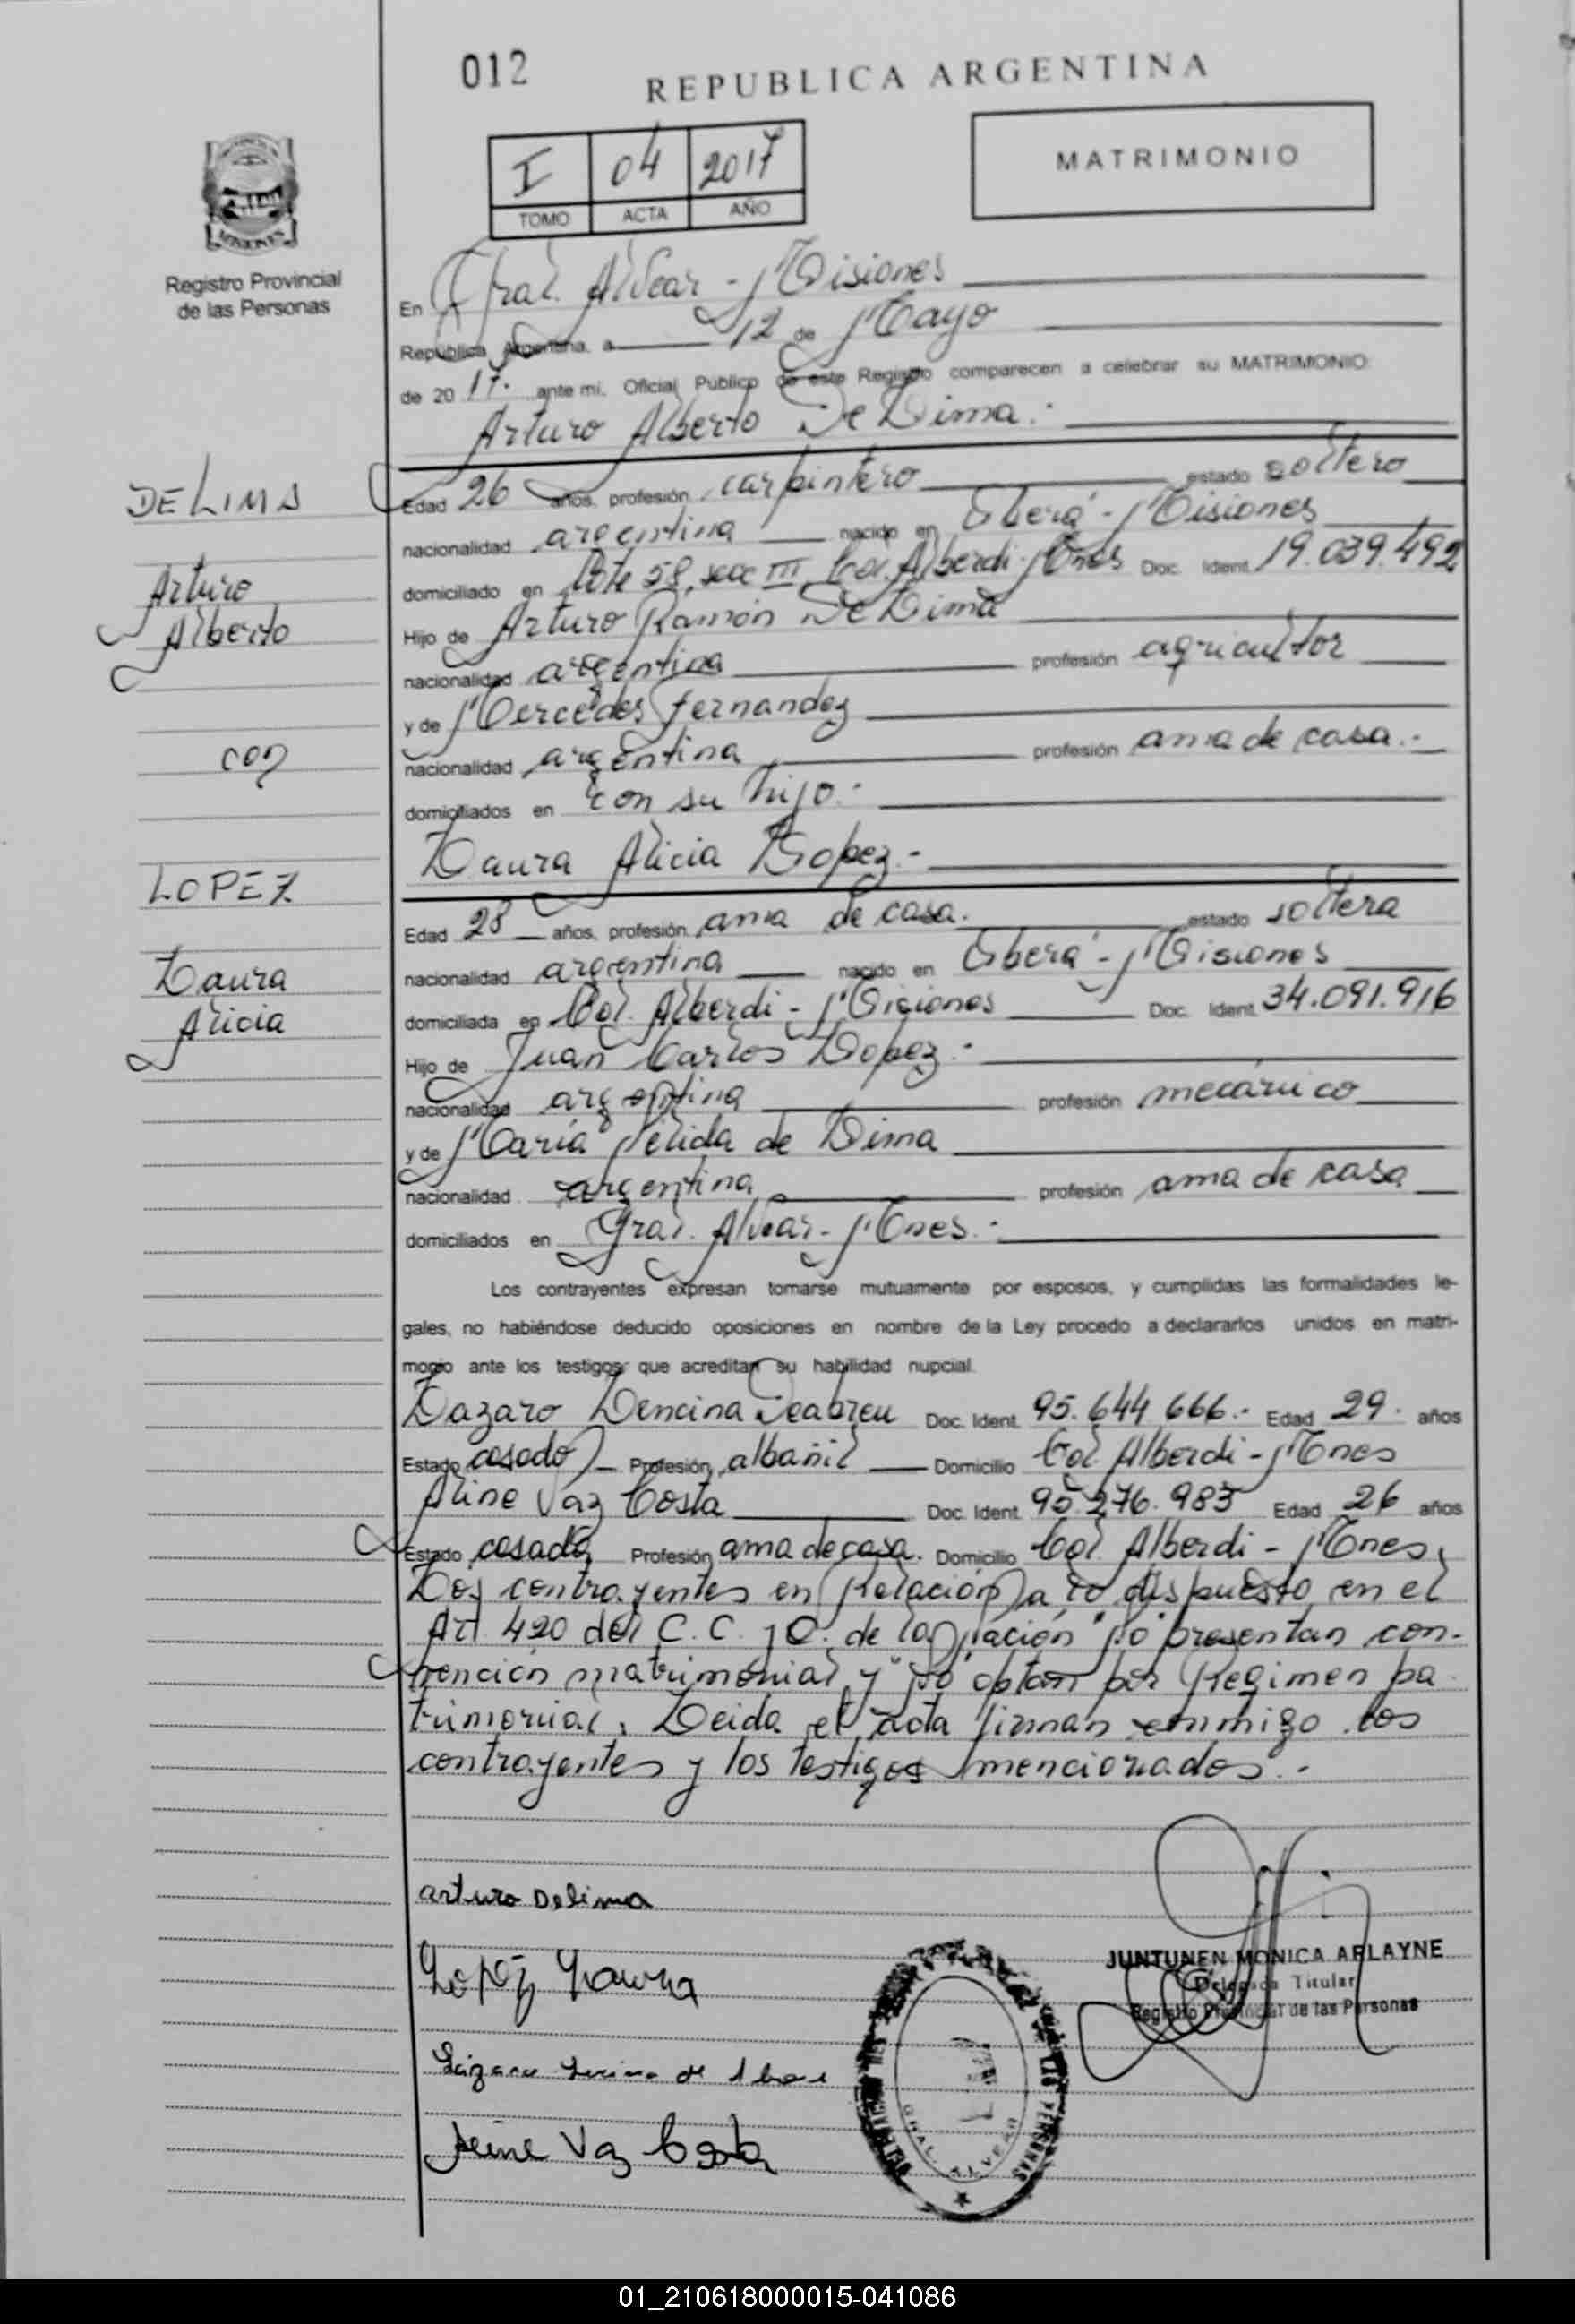 012
REPUBLICA ARGENTINA
MATRIMONIO
I 04 2017
TOMO ACTA AÑO
MISIONES
Registro Provincial
de las Personas
En Gral. Alvear - Misiones
República Argentina, a 12 de Mayo
de 20 17. ante mi, Oficial Público de este Registro comparecen a celebrar su MATRIMONIO
Arturo Alberto De Lima.-
DE LIMA
Arturo
Alberto
con
LOPEZ
Laura
Alicia
Edad 26 años, profesión carpintero estado soltero
nacionalidad argentina nacido en Oberá - Misiones
domiciliado en Lote 58, secc III, Col. Alberdi - Mnes Doc. Ident. 19.039.492
Hijo de Arturo Ramón De Lima
nacionalidad argentina profesión agricultor
y de Mercedes Fernandez
nacionalidad argentina profesión ama de casa.-
domiciliados en con su hijo.-
Laura Alicia Lopez.-
Edad 28 años, profesión ama de casa. estado soltera
nacionalidad argentina nacido en Oberá - Misiones
domiciliada en Col. Alberdi - Misiones Doc. Ident. 34.091.916
Hijo de Juan Carlos Lopez.-
nacionalidad argentina profesión mecánico
y de María Nélida de Lima
nacionalidad argentina profesión ama de casa
domiciliados en Gral. Alvear - Mnes.-
Los contrayentes expresan tomarse mutuamente por esposos, y cumplidas las formalidades le-
gales, no habiéndose deducido oposiciones en nombre de la Ley procedo a declararlos unidos en matri-
monio ante los testigos que acreditan su habilidad nupcial.
Lazaro Lencina Deabreu Doc. Ident. 95.644 666.- Edad 29. años
Estado casado Profesión albañil Domicilio Col Alberdi - Mnes
Aline Vaz Costa Doc. Ident. 95.276.983 Edad 26 años
Estado casada Profesión ama de casa. Domicilio Col. Alberdi - Mnes,
Los contrayentes en Relación a lo dispuesto en el
Art 420 del C.C. y C. de la Nación "No" presentan con-
vención matrimonial y "No" optan por Regimen pa-
trimonial. Leida el acta firman conmigo los
contrayentes y los testigos mencionados.-
arturo Delima
Lopez Laura
Aline Vaz Costa
JUNTUNEN MONICA ARLAYNE
Delegada Titular
Registro Provincial de las Personas
GRAL. ALVEAR
01_210618000015-041086